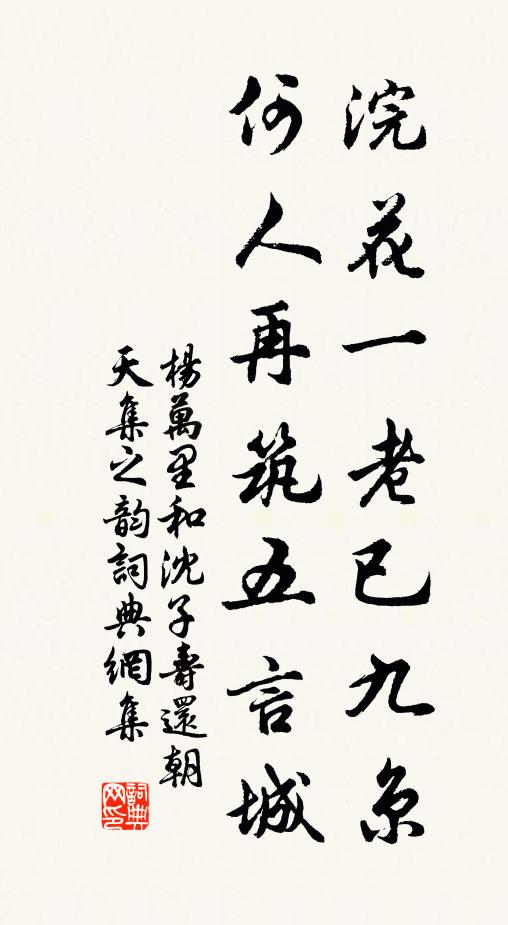 浣花一老已九京
何人再筑五言城
楊萬里和沈子壽還朝
天集之韵詞典網集
詞典网印